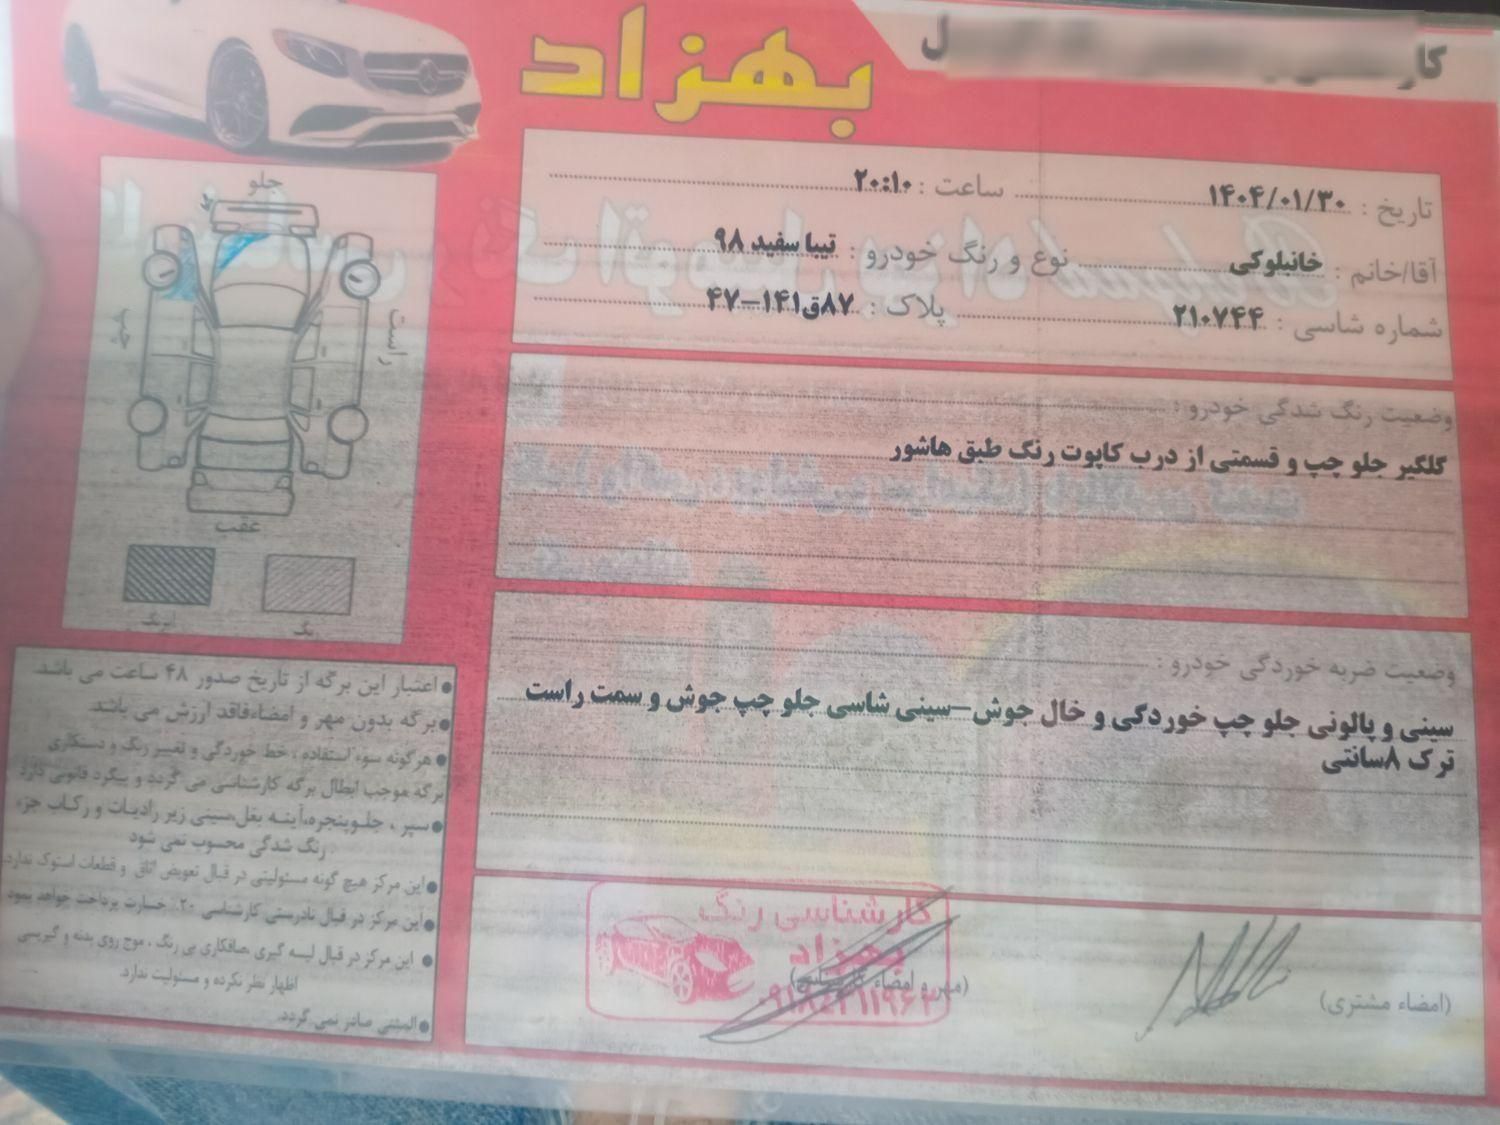 بهزاد
تاریخ : ۱۴۰۴/۰۱/۳۰ ساعت : ۲۰:۱۰
آقا/خانم : خانبلوکی نوع و رنگ خودرو : تیبا سفید ۹۸
شماره شاسی : ۲۱۰۷۴۴ پلاک : ۸۷ق۱۴۱-۴۷
وضعیت رنگ شدگی خودرو :
گلگیر جلو چپ و قسمتی از درب کاپوت رنگ طبق هاشور
وضعیت ضربه خوردگی خودرو :
سینی و پالونی جلو چپ خوردگی و خال جوش-سینی شاسی جلو چپ جوش و سمت راست
ترک ۸سانتی
(امضاء مشتری)
(مهر و امضاء کارشناس)
کارشناسی رنگ
بهزاد
جلو
راست
چپ
عقب
رنگ
• اعتبار این برگه از تاریخ صدور ۴۸ ساعت می باشد.
• برگه بدون مهر و امضاءفاقد ارزش می باشد.
• هرگونه سوء استفاده ، خط خوردگی و تغییر رنگ و دستکاری
برگه موجب ابطال برگه کارشناسی می گردد و پیگرد قانونی دارد
• سپر ، جلوپنجره،آینه بغل،سینی زیر رادیات و رکاب جزء
رنگ شدگی محسوب نمی شود
• این مرکز هیچ گونه مسئولیتی در قبال تعویض اتاق و قطعات استوک ندارد.
• این مرکز در قبال نادرستی کارشناسی ۲۰٪ خسارت پرداخت خواهد نمود
• این مرکز در قبال لیسه گیری ،صافکاری بی رنگ ، موج روی بدنه و گیریسی
اظهار نظر نکرده و مسئولیت ندارد.
• المثنی صادر نمی گردد.